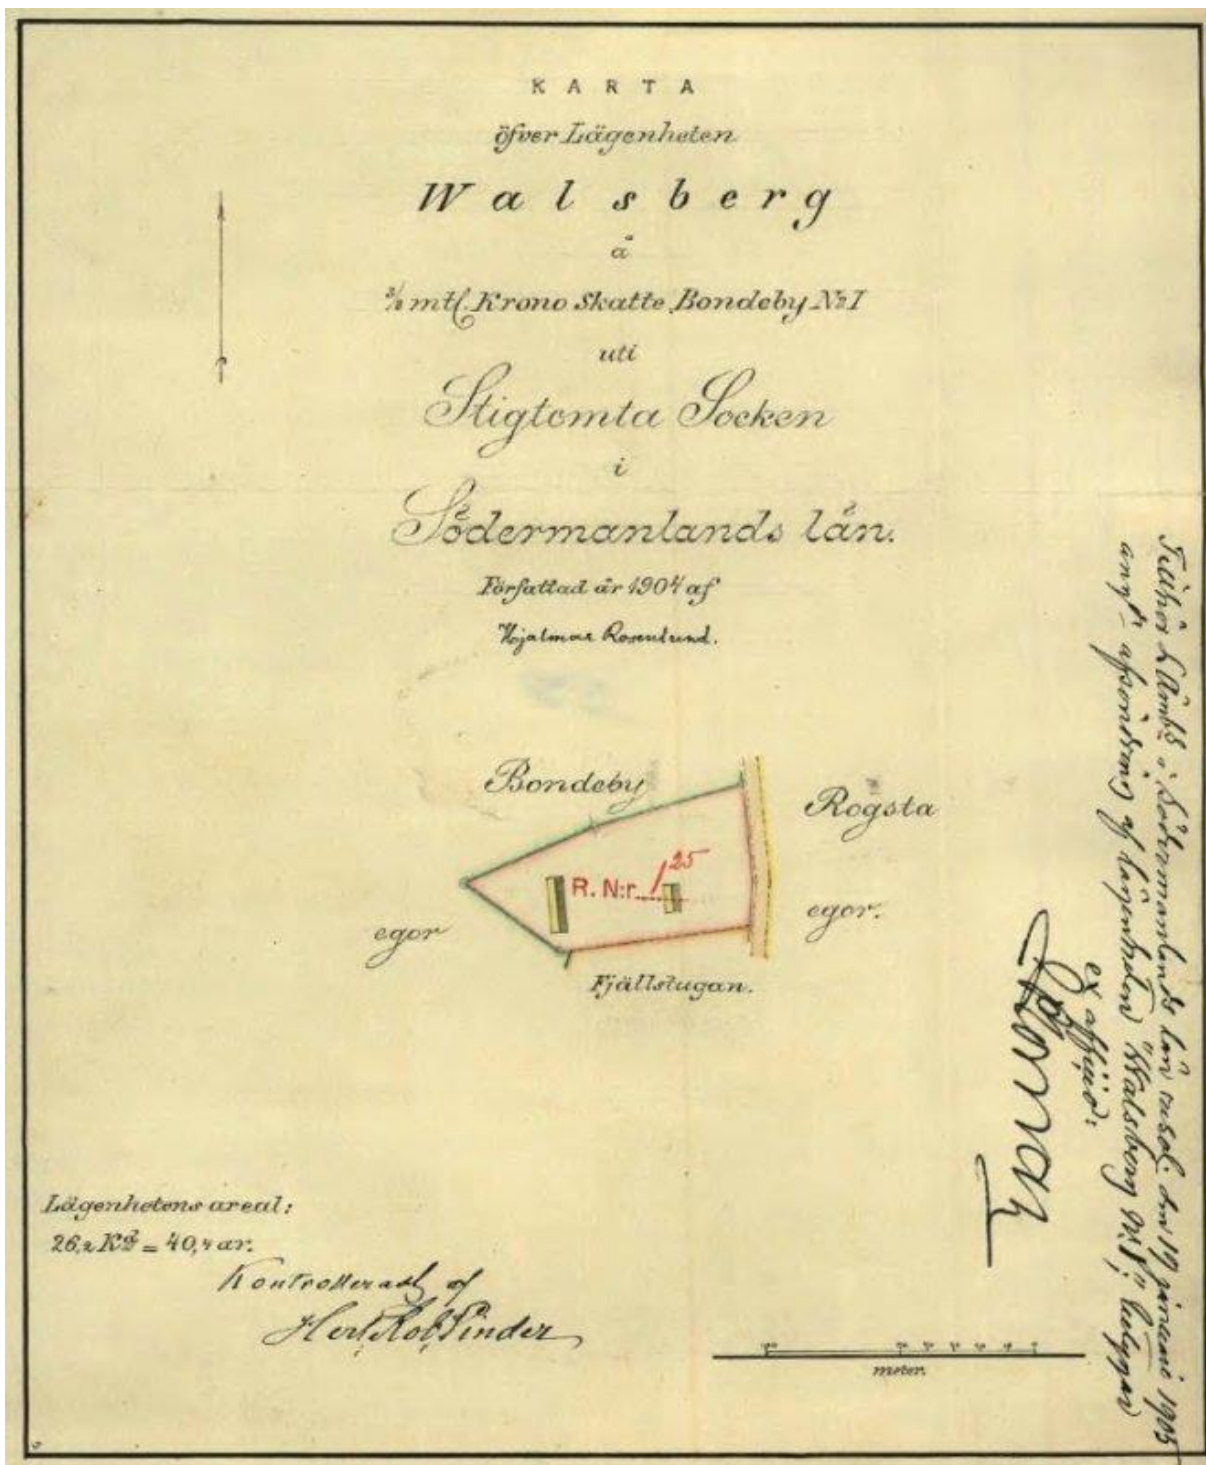 KARTA
öfver Lägenheten
Walsberg
å
mtl. Krono Skatte Bondeby No I
uti
Stigtomta Socken
i
Södermanlands län.
Författad år 1904 af
Hjalmar Rosenlund.
Bondeby
Rogsta
R. N:r 1 25
egor
egor.
Fjällstugan.
Lägenhetens areal:
26,2 Kd = 40,4 ar.
Kontrollerad af
Pinder
meter.
Tillhör i Södermanlands län resol. den 19 januari 1905
ang. afsöndring af lägenheten "Walsberg No 1"; betygar
ex officio: